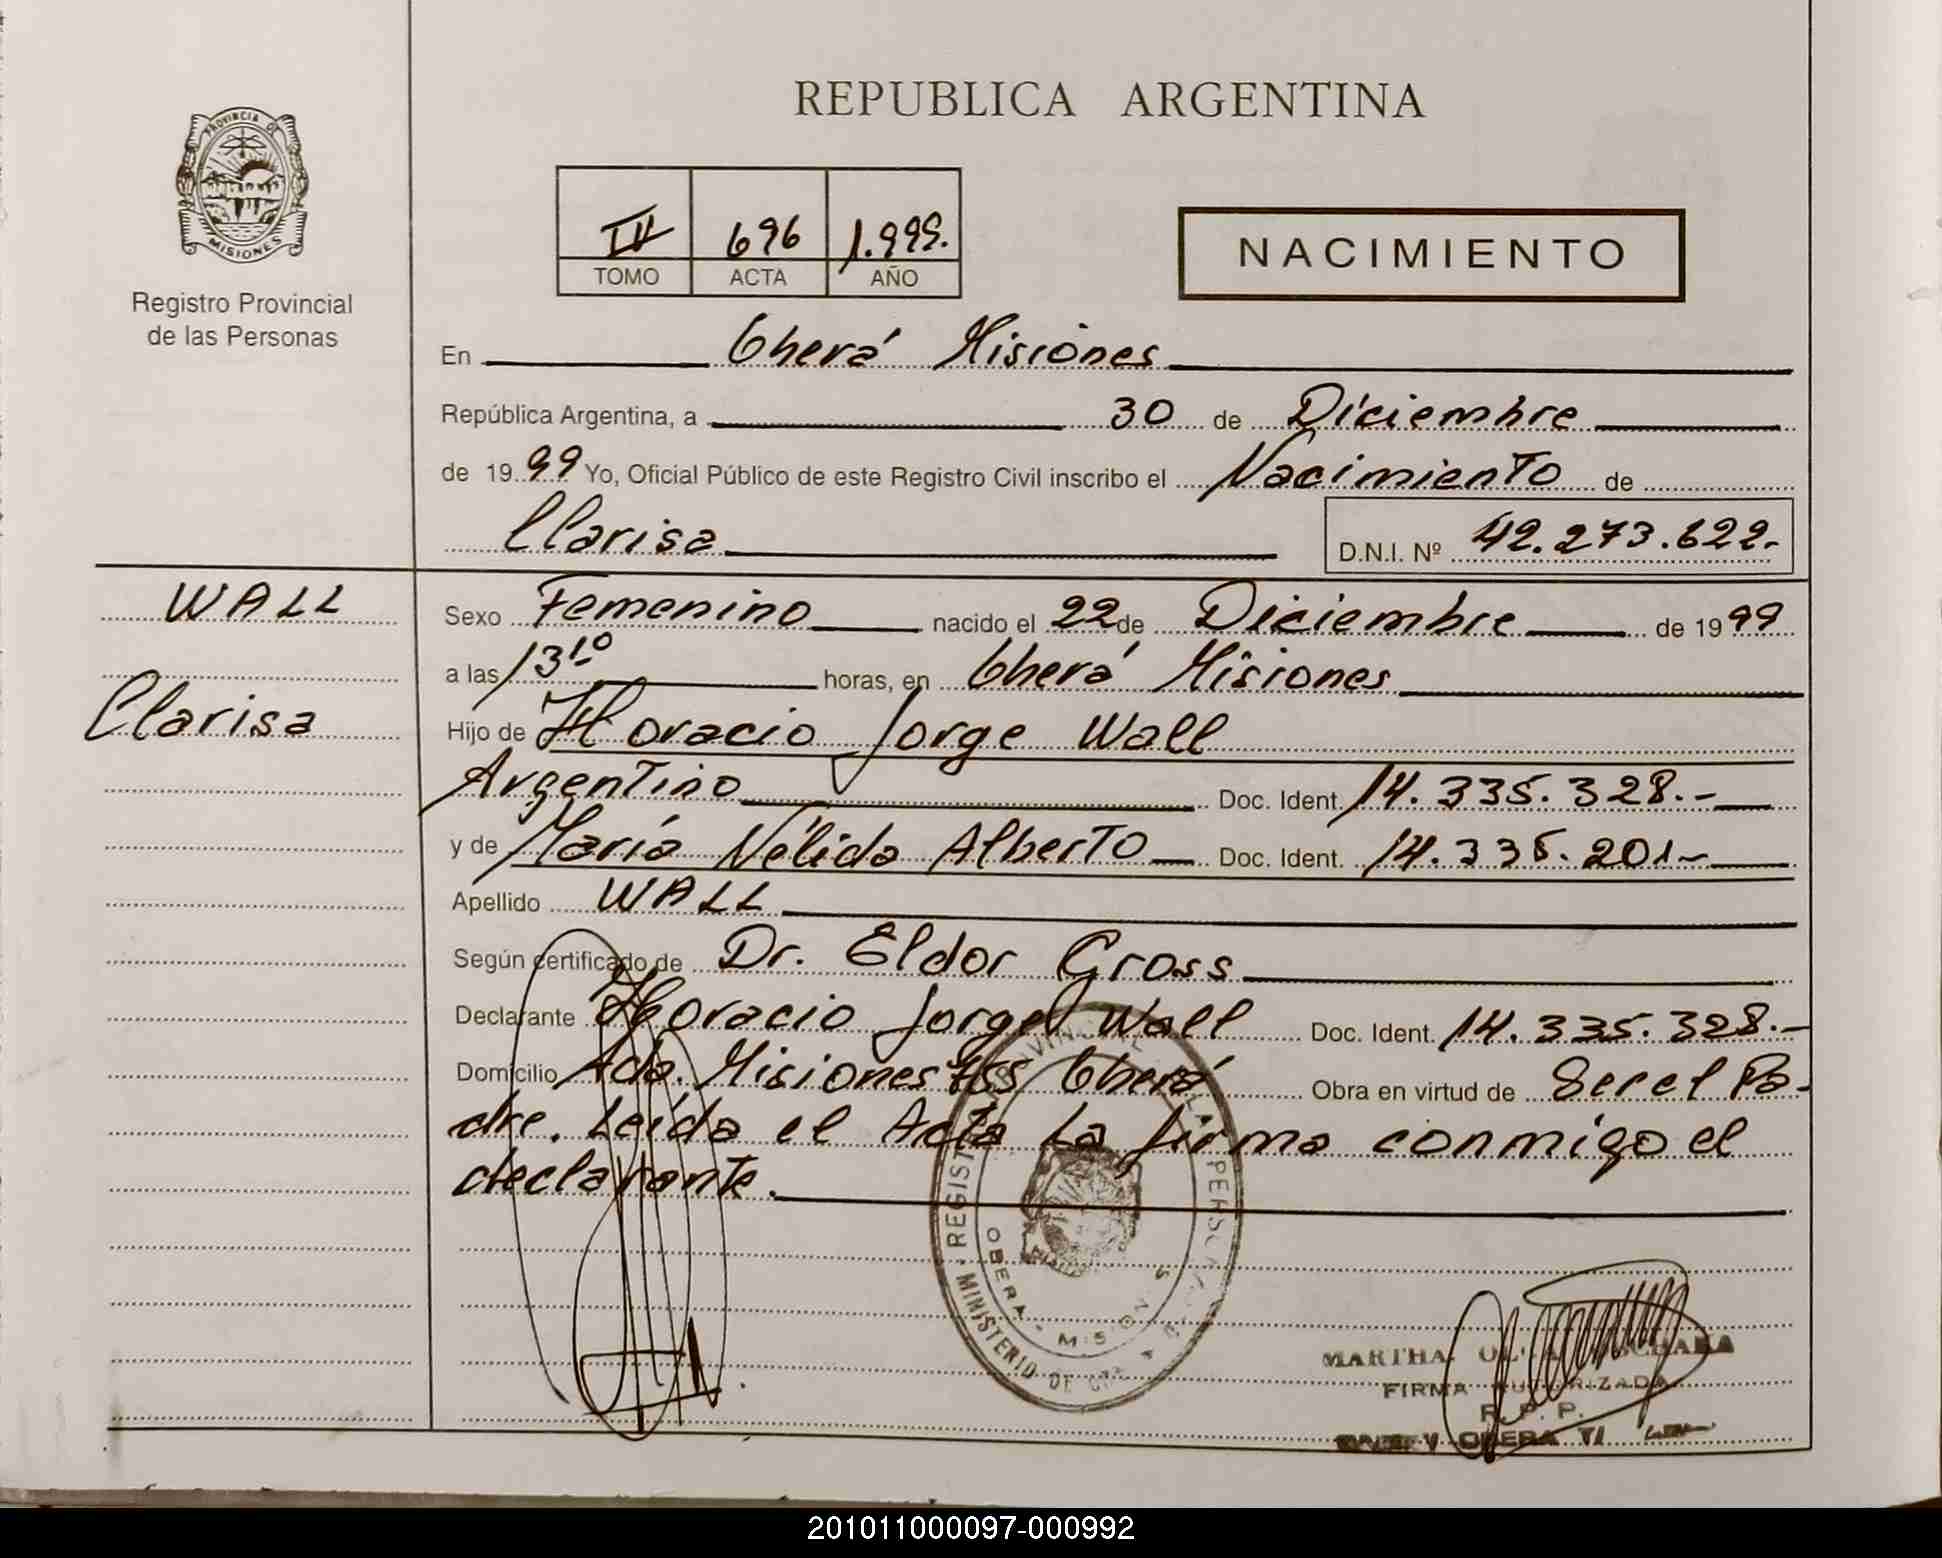 REPUBLICA ARGENTINA
PROVINCIA DE
MISIONES
Registro Provincial
de las Personas
IV 696 1.999.
TOMO ACTA AÑO
NACIMIENTO
En Oberá Misiones
República Argentina, a 30 de Diciembre
de 1999 Yo, Oficial Público de este Registro Civil inscribo el Nacimiento de
Clarisa D.N.I. Nº 42.273.622.-
WALL
Clarisa
Sexo Femenino nacido el 22 de Diciembre de 1999
a las 13¹⁰ horas, en Oberá Misiones
Hijo de Horacio Jorge Wall
Argentino Doc. Ident. 14.335.328.-
y de María Nélida Alberto Doc. Ident. 14.335.201-
Apellido WALL
Según certificado de Dr. Eldor Gross
Declarante Horacio Jorge Wall Doc. Ident. 14.335.328.-
Domicilio Avda. Misiones Oberá Obra en virtud de Ser el Pa-
dre. Leída el Acta La firma conmigo el
declarante.
REGIST PROVINCIAL LA PERSONA
MINISTERIO DE
OBERA - MISIONES
MARTHA
FIRMA AUTORIZADA
R.P.P.
OBERA
201011000097-000992